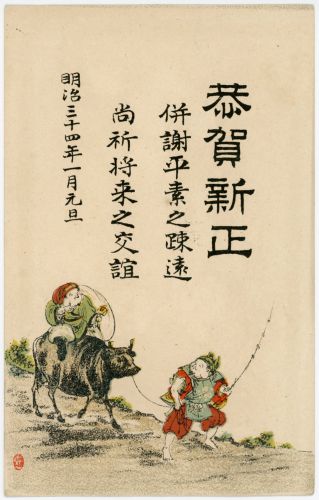 恭賀新正
併謝平素之疎遠
尚祈将来之交誼
明治三十四年一月元旦